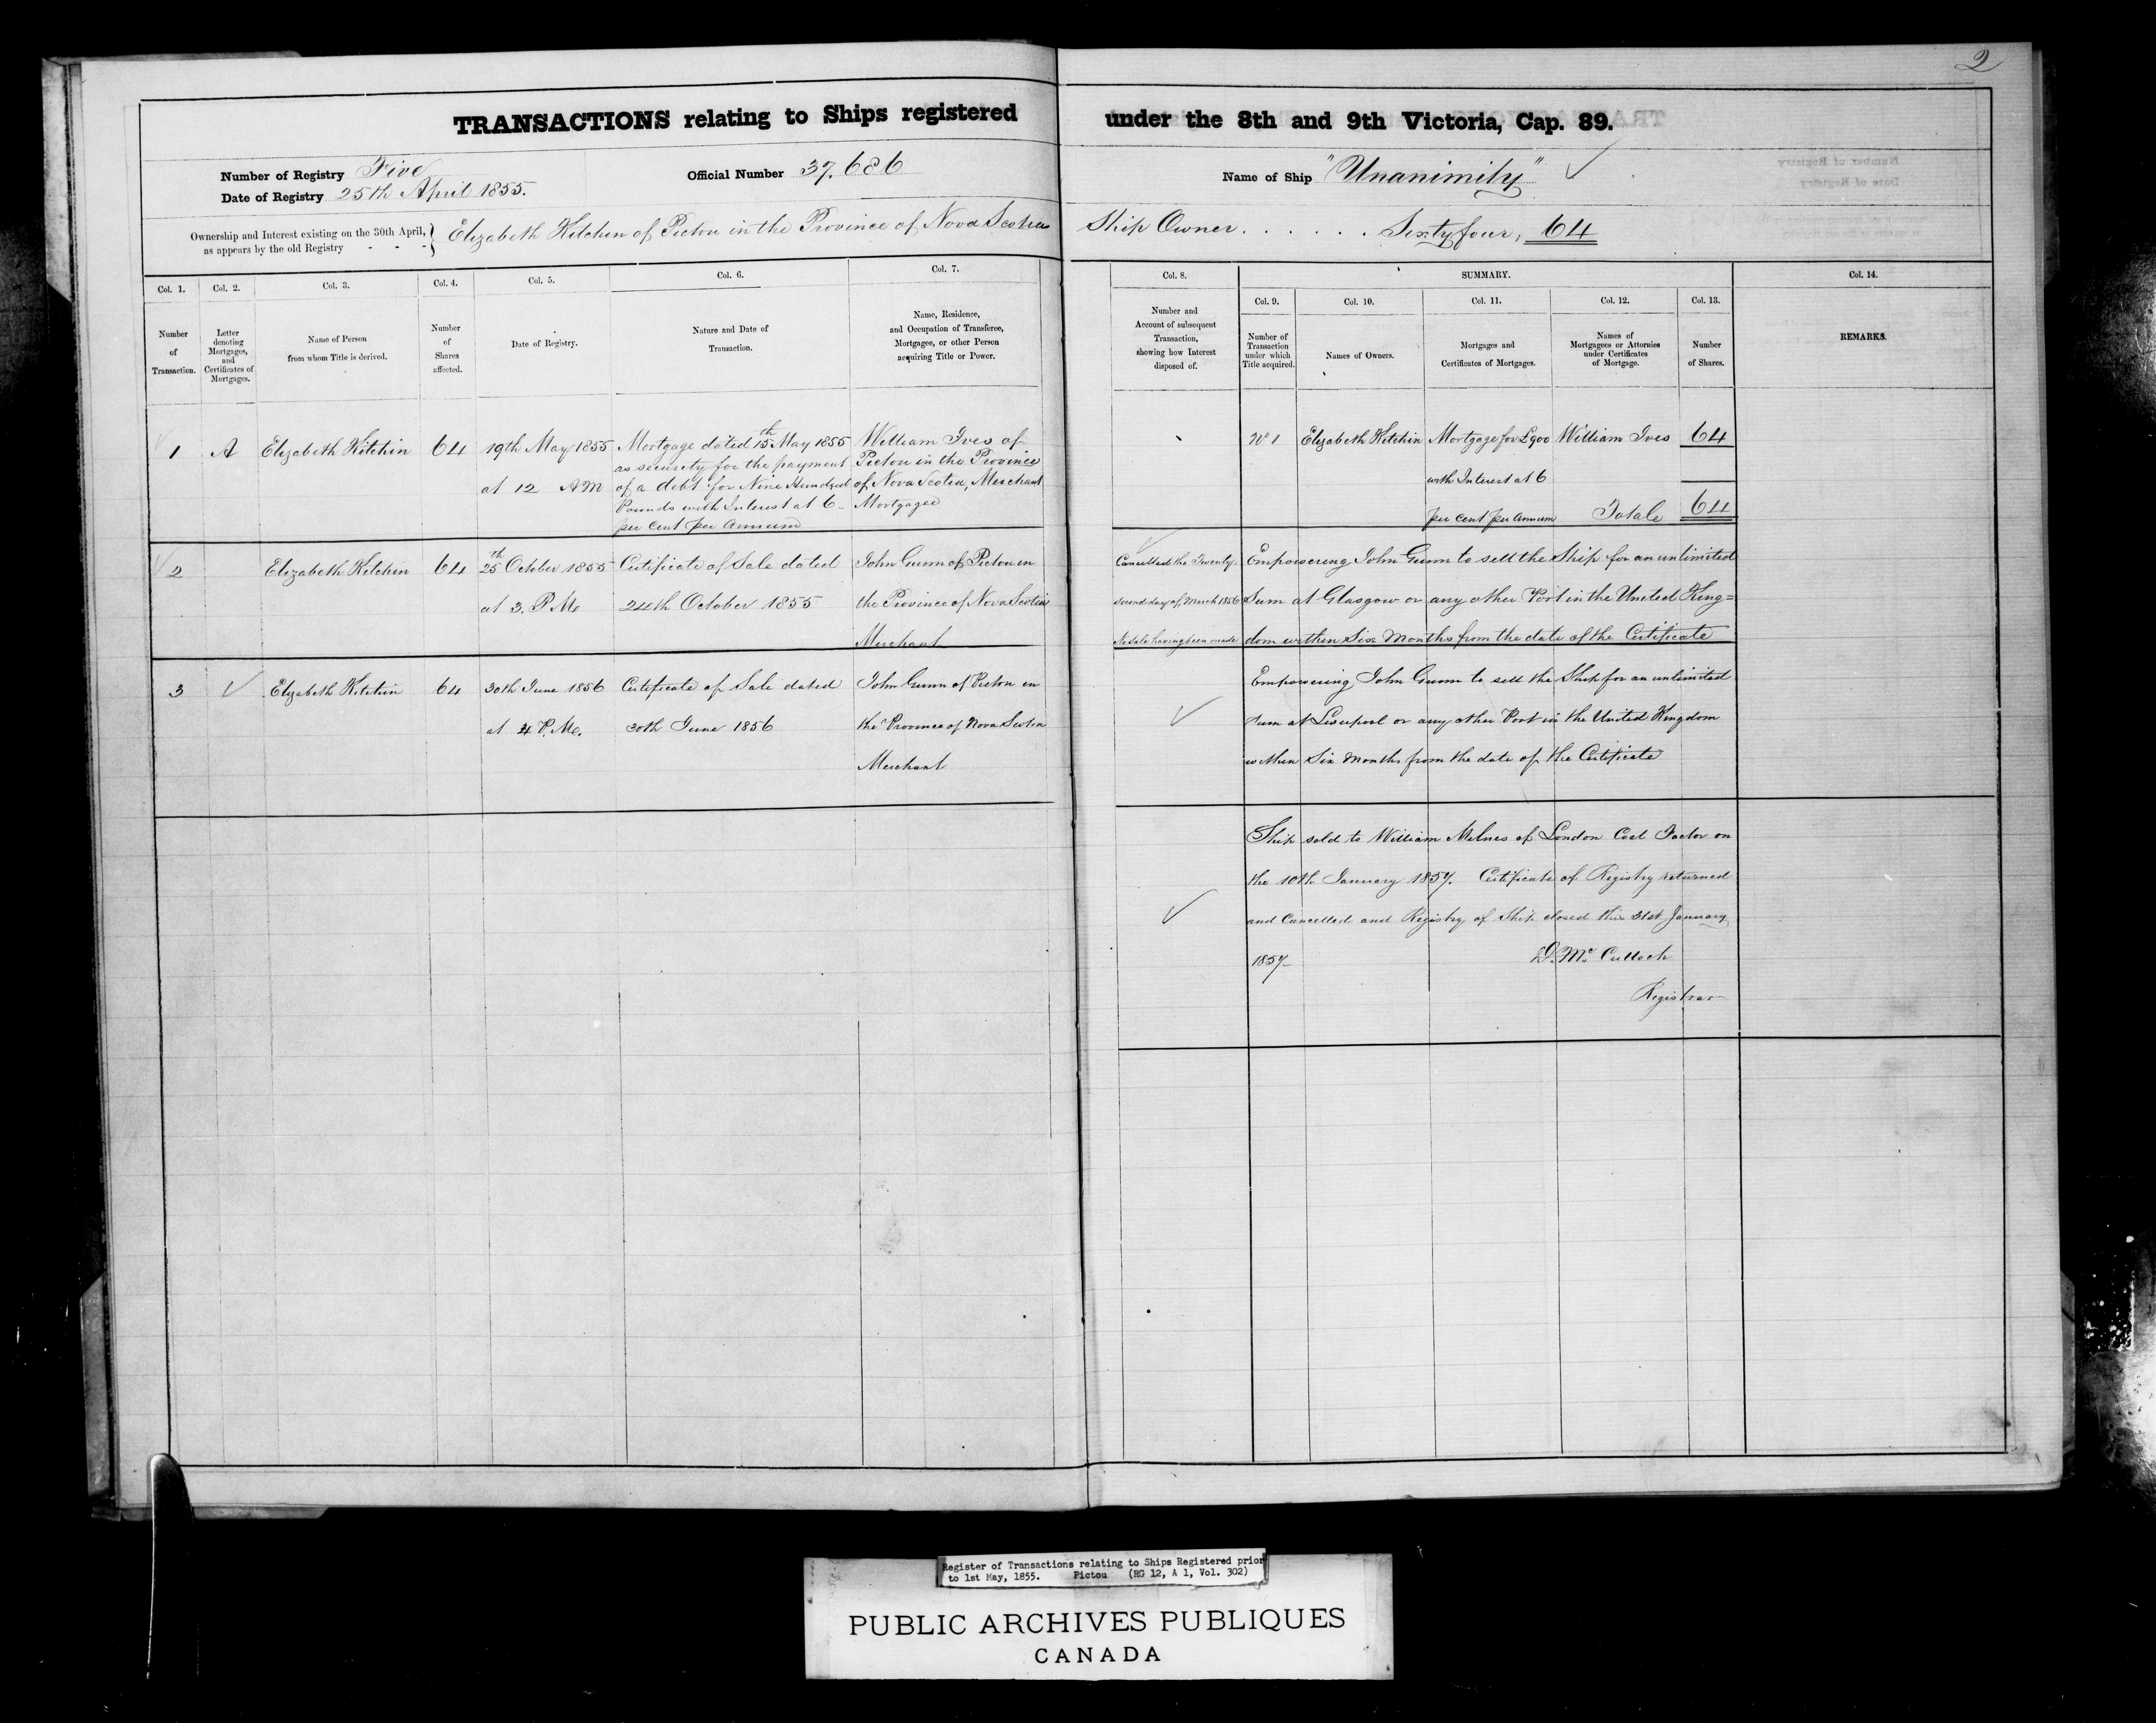 2
TRANSACTIONS relating to Ships registered under the 8th and 9th Victoria, Cap. 89.
Number of Registry Five
Official Number 37.686
Name of Ship "Unanimity"
Date of Registry 25th April 1855.
Ownership and Interest existing on the 30th April,
as appears by the old Registry - - -
Elizabeth Kitchin of Pictou in the Province of Nova Scotia Ship Owner . . . . . . Sixty four, 64
Col. 1.
Number
of
Transaction.
Col. 2.
Letter
denoting
Mortgages,
and
Certificates of
Mortgages.
Col. 3.
Name of Person
from whom Title is derived.
Col. 4.
Number
of
Shares
affected.
Col. 5.
Date of Registry.
Col. 6.
Nature and Date of
Transaction.
Col. 7.
Name, Residence,
and Occupation of Transferee,
Mortgagee, or other Person
acquiring Title or Power.
Col. 8.
Number and
Account of subsequent
Transaction,
showing how Interest
disposed of.
SUMMARY.
Col. 9.
Number of
Transaction
under which
Title acquired.
Col. 10.
Names of Owners.
Col. 11.
Mortgages and
Certificates of Mortgages.
Col. 12.
Names of
Mortgagees or Attornies
under Certificates
of Mortgage.
Col. 13.
Number
of Shares.
Col. 14.
REMARKS.
1
A
Elizabeth Kitchin
64
19th May 1855
at 12 AM
Mortgage dated 15th May 1855
as security for the payment
of a debt for Nine Hundred
Pounds with Interest at 6
per Cent per Annum
William Ives of
Pictou in the Province
of Nova Scotia, Merchant
Mortgagee
No 1
Elizabeth Kitchin
Mortgage for £900
with Interest at 6
per cent per Annum
William Ives
64
Totale 64
2
Elizabeth Kitchin
64
25th October 1855
at 3. P.M.
Certificate of Sale dated
24th October 1855
John Gunn of Pictou in
the Province of Nova Scotia
Merchant
Cancelled the Twenty
second day of March 1856
No Sale having been made
Empowering John Gunn to sell the Ship for an unlimited
Sum at Glasgow or any other Port in the United King=
dom within Six Months from the date of the Certificate
3
Elizabeth Kitchin
64
30th June 1856
at 4 P.M.
Certificate of Sale dated
30th June 1856
John Gunn of Pictou in
the Province of Nova Scotia
Merchant
Empowering John Gunn to sell the Ship for an unlimited
sum at Liverpool or any other Port in the United Kingdom
within Six Months from the date of the Certificate
Ship sold to William Milnes of London Coal Factor on
the 10th January 1857. Certificate of Registry returned
and Cancelled and Registry of Ship closed this 31st January
1857
D. Mc Culloch
Registrar
Register of Transactions relating to Ships Registered prior
to 1st May, 1855. Pictou (RG 12, A 1, Vol. 302)
PUBLIC ARCHIVES PUBLIQUES
CANADA